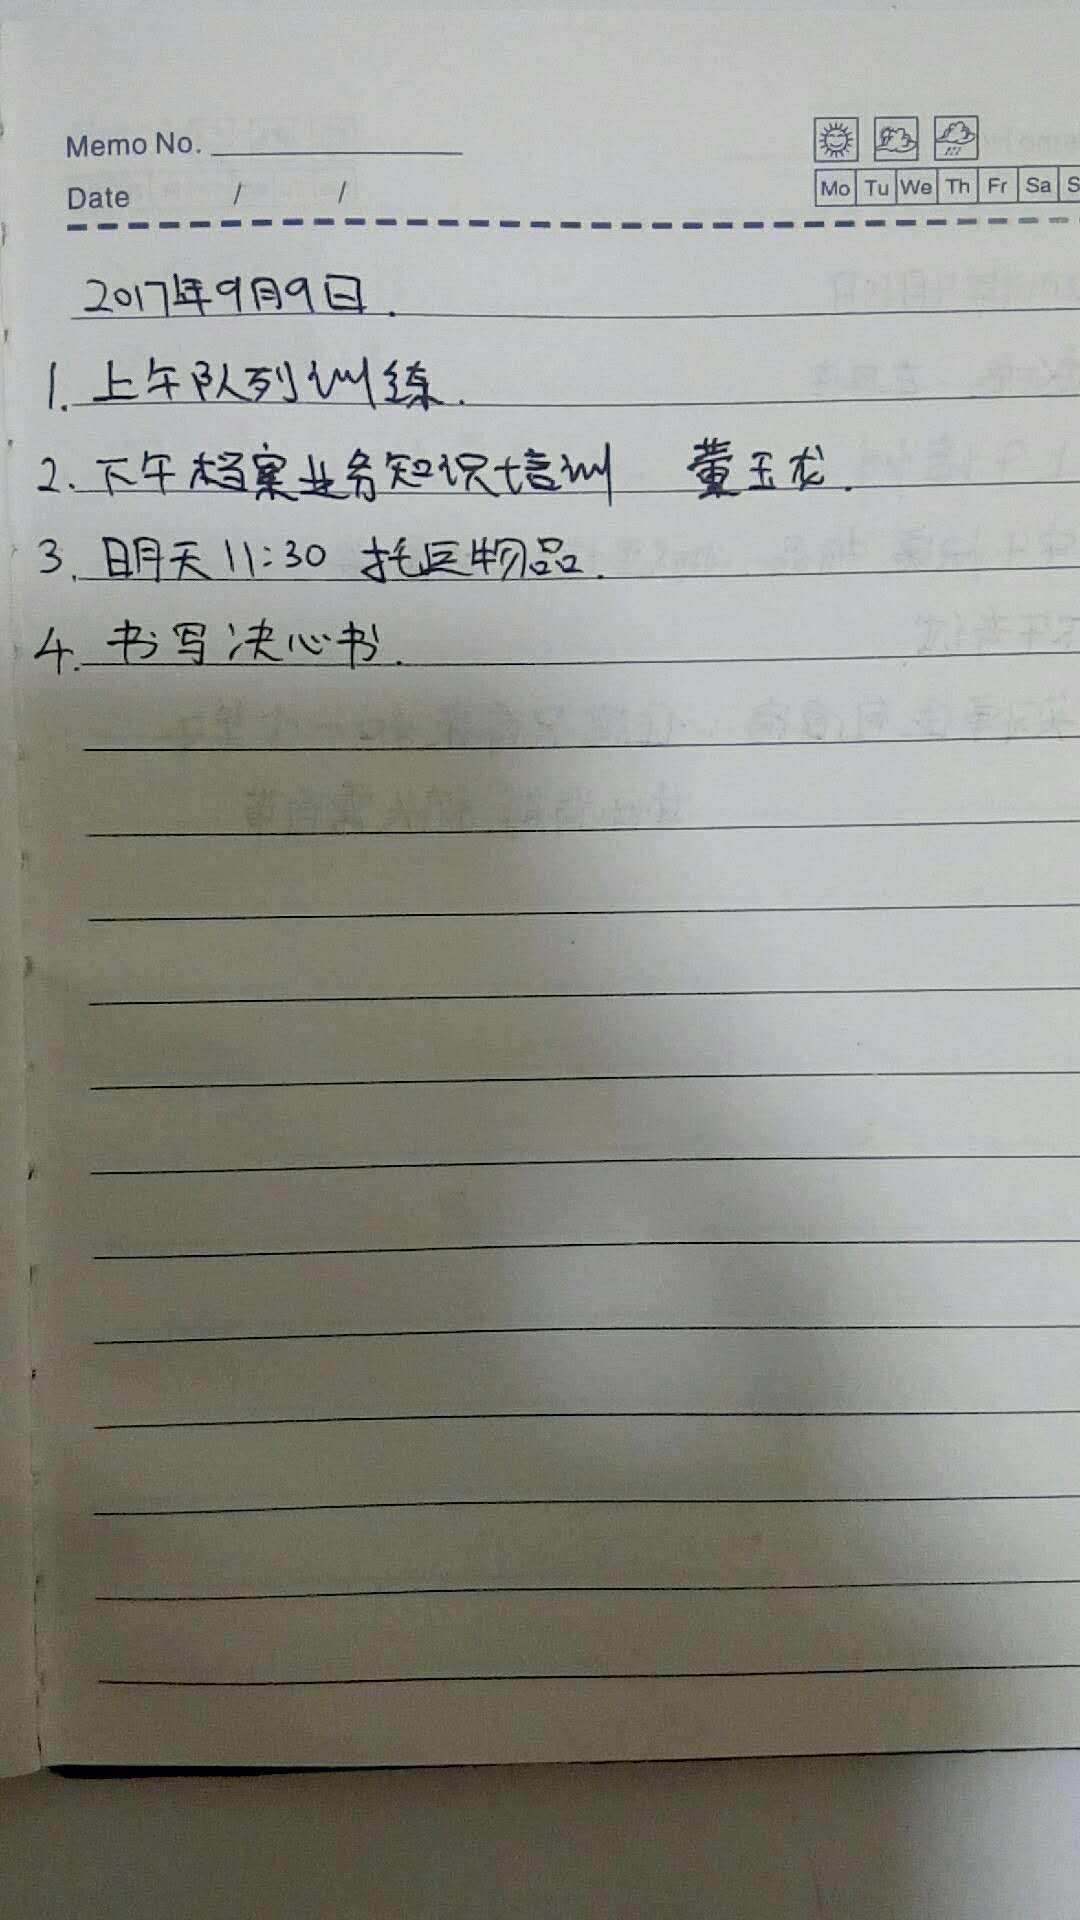 Memo No.
Date / /
Mo Tu We Th Fr Sa S
2017年9月9日.
1. 上午队列训练.
2. 下午档案业务知识培训 董玉龙.
3. 明天11:30 托运物品.
4. 书写决心书.